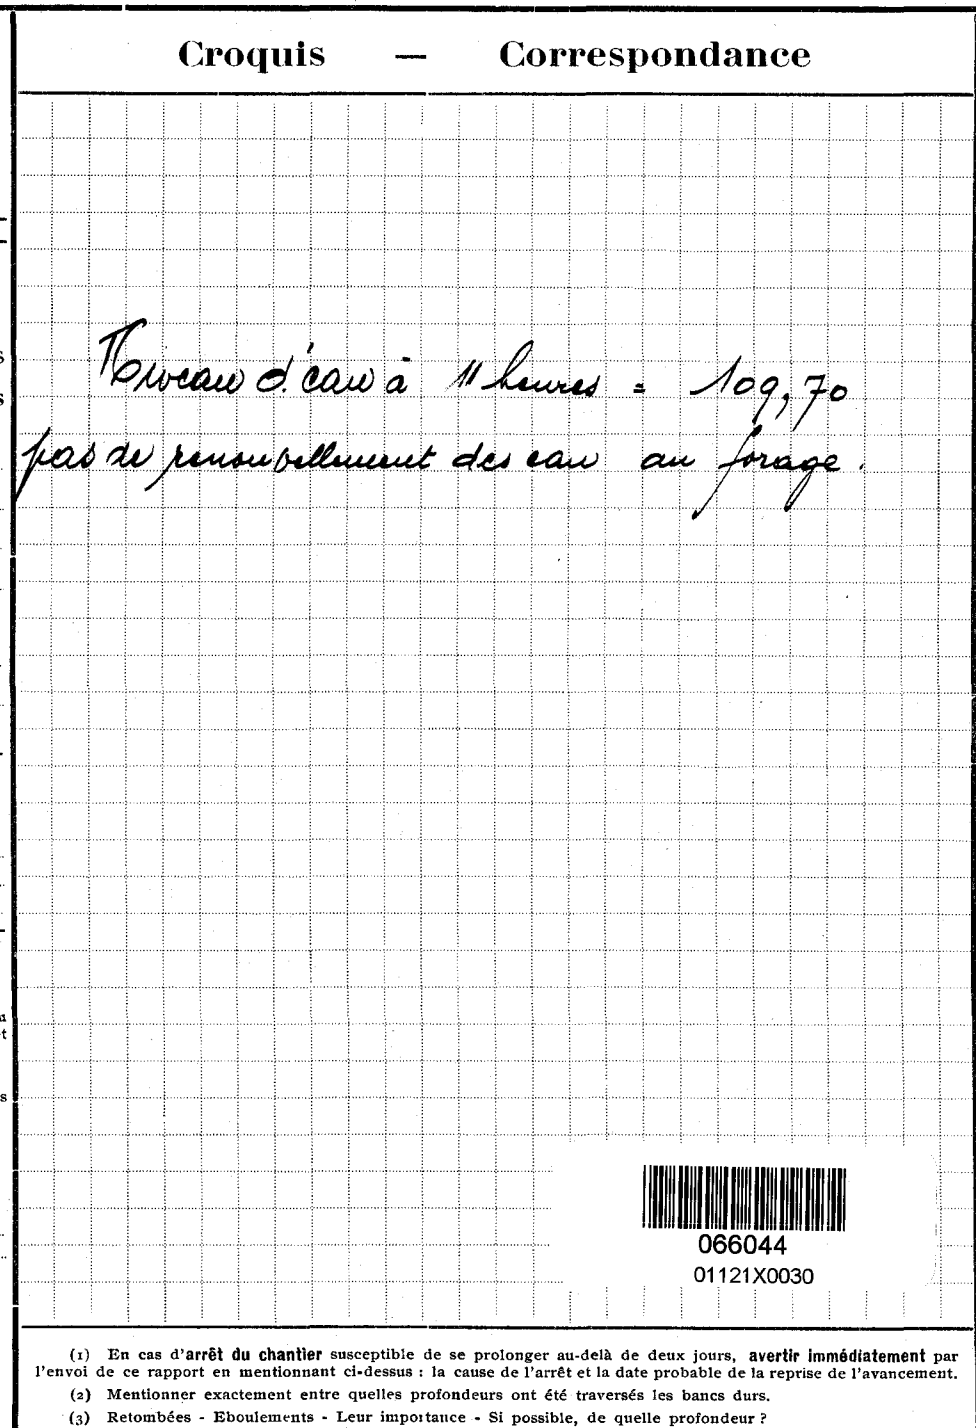 Croquis — Correspondance
Niveau d'eau à 11 heures = 109,70
pas de renouvellement des eau au forage.
066044
01121X0030
(1) En cas d'arrêt du chantier susceptible de se prolonger au-delà de deux jours, avertir immédiatement par
l'envoi de ce rapport en mentionnant ci-dessus : la cause de l'arrêt et la date probable de la reprise de l'avancement.
(2) Mentionner exactement entre quelles profondeurs ont été traversés les bancs durs.
(3) Retombées - Eboulements - Leur importance - Si possible, de quelle profondeur ?